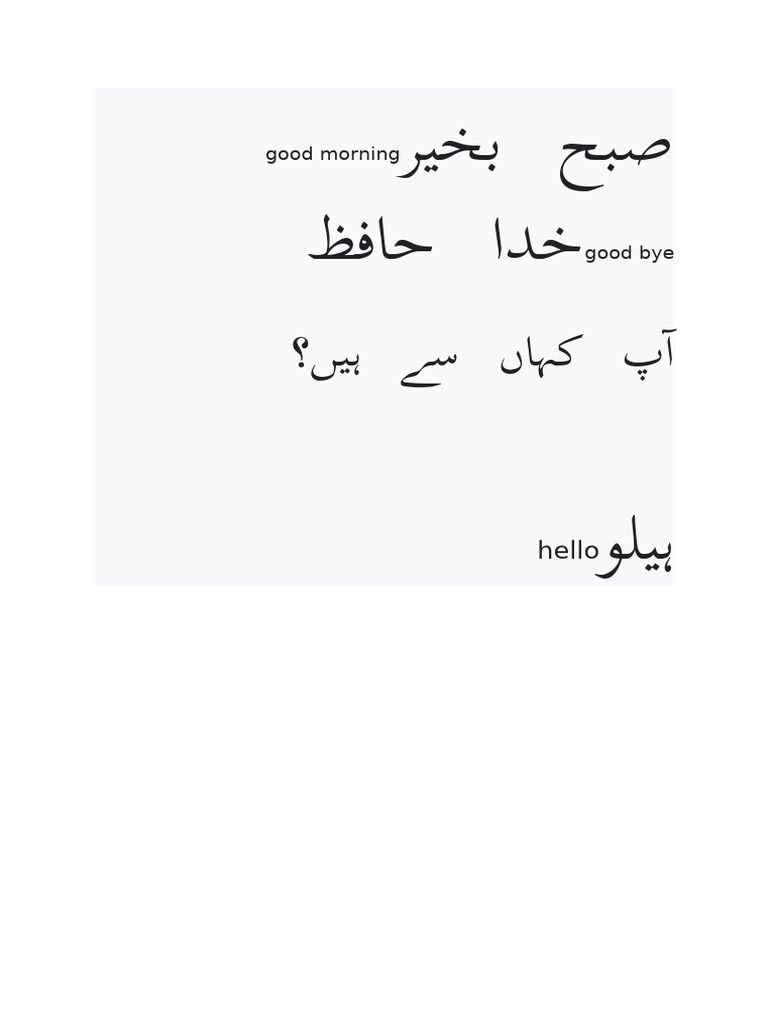 صبح بخیر good morning
good bye خدا حافظ
آپ کہاں سے ہیں؟
ہیلو hello